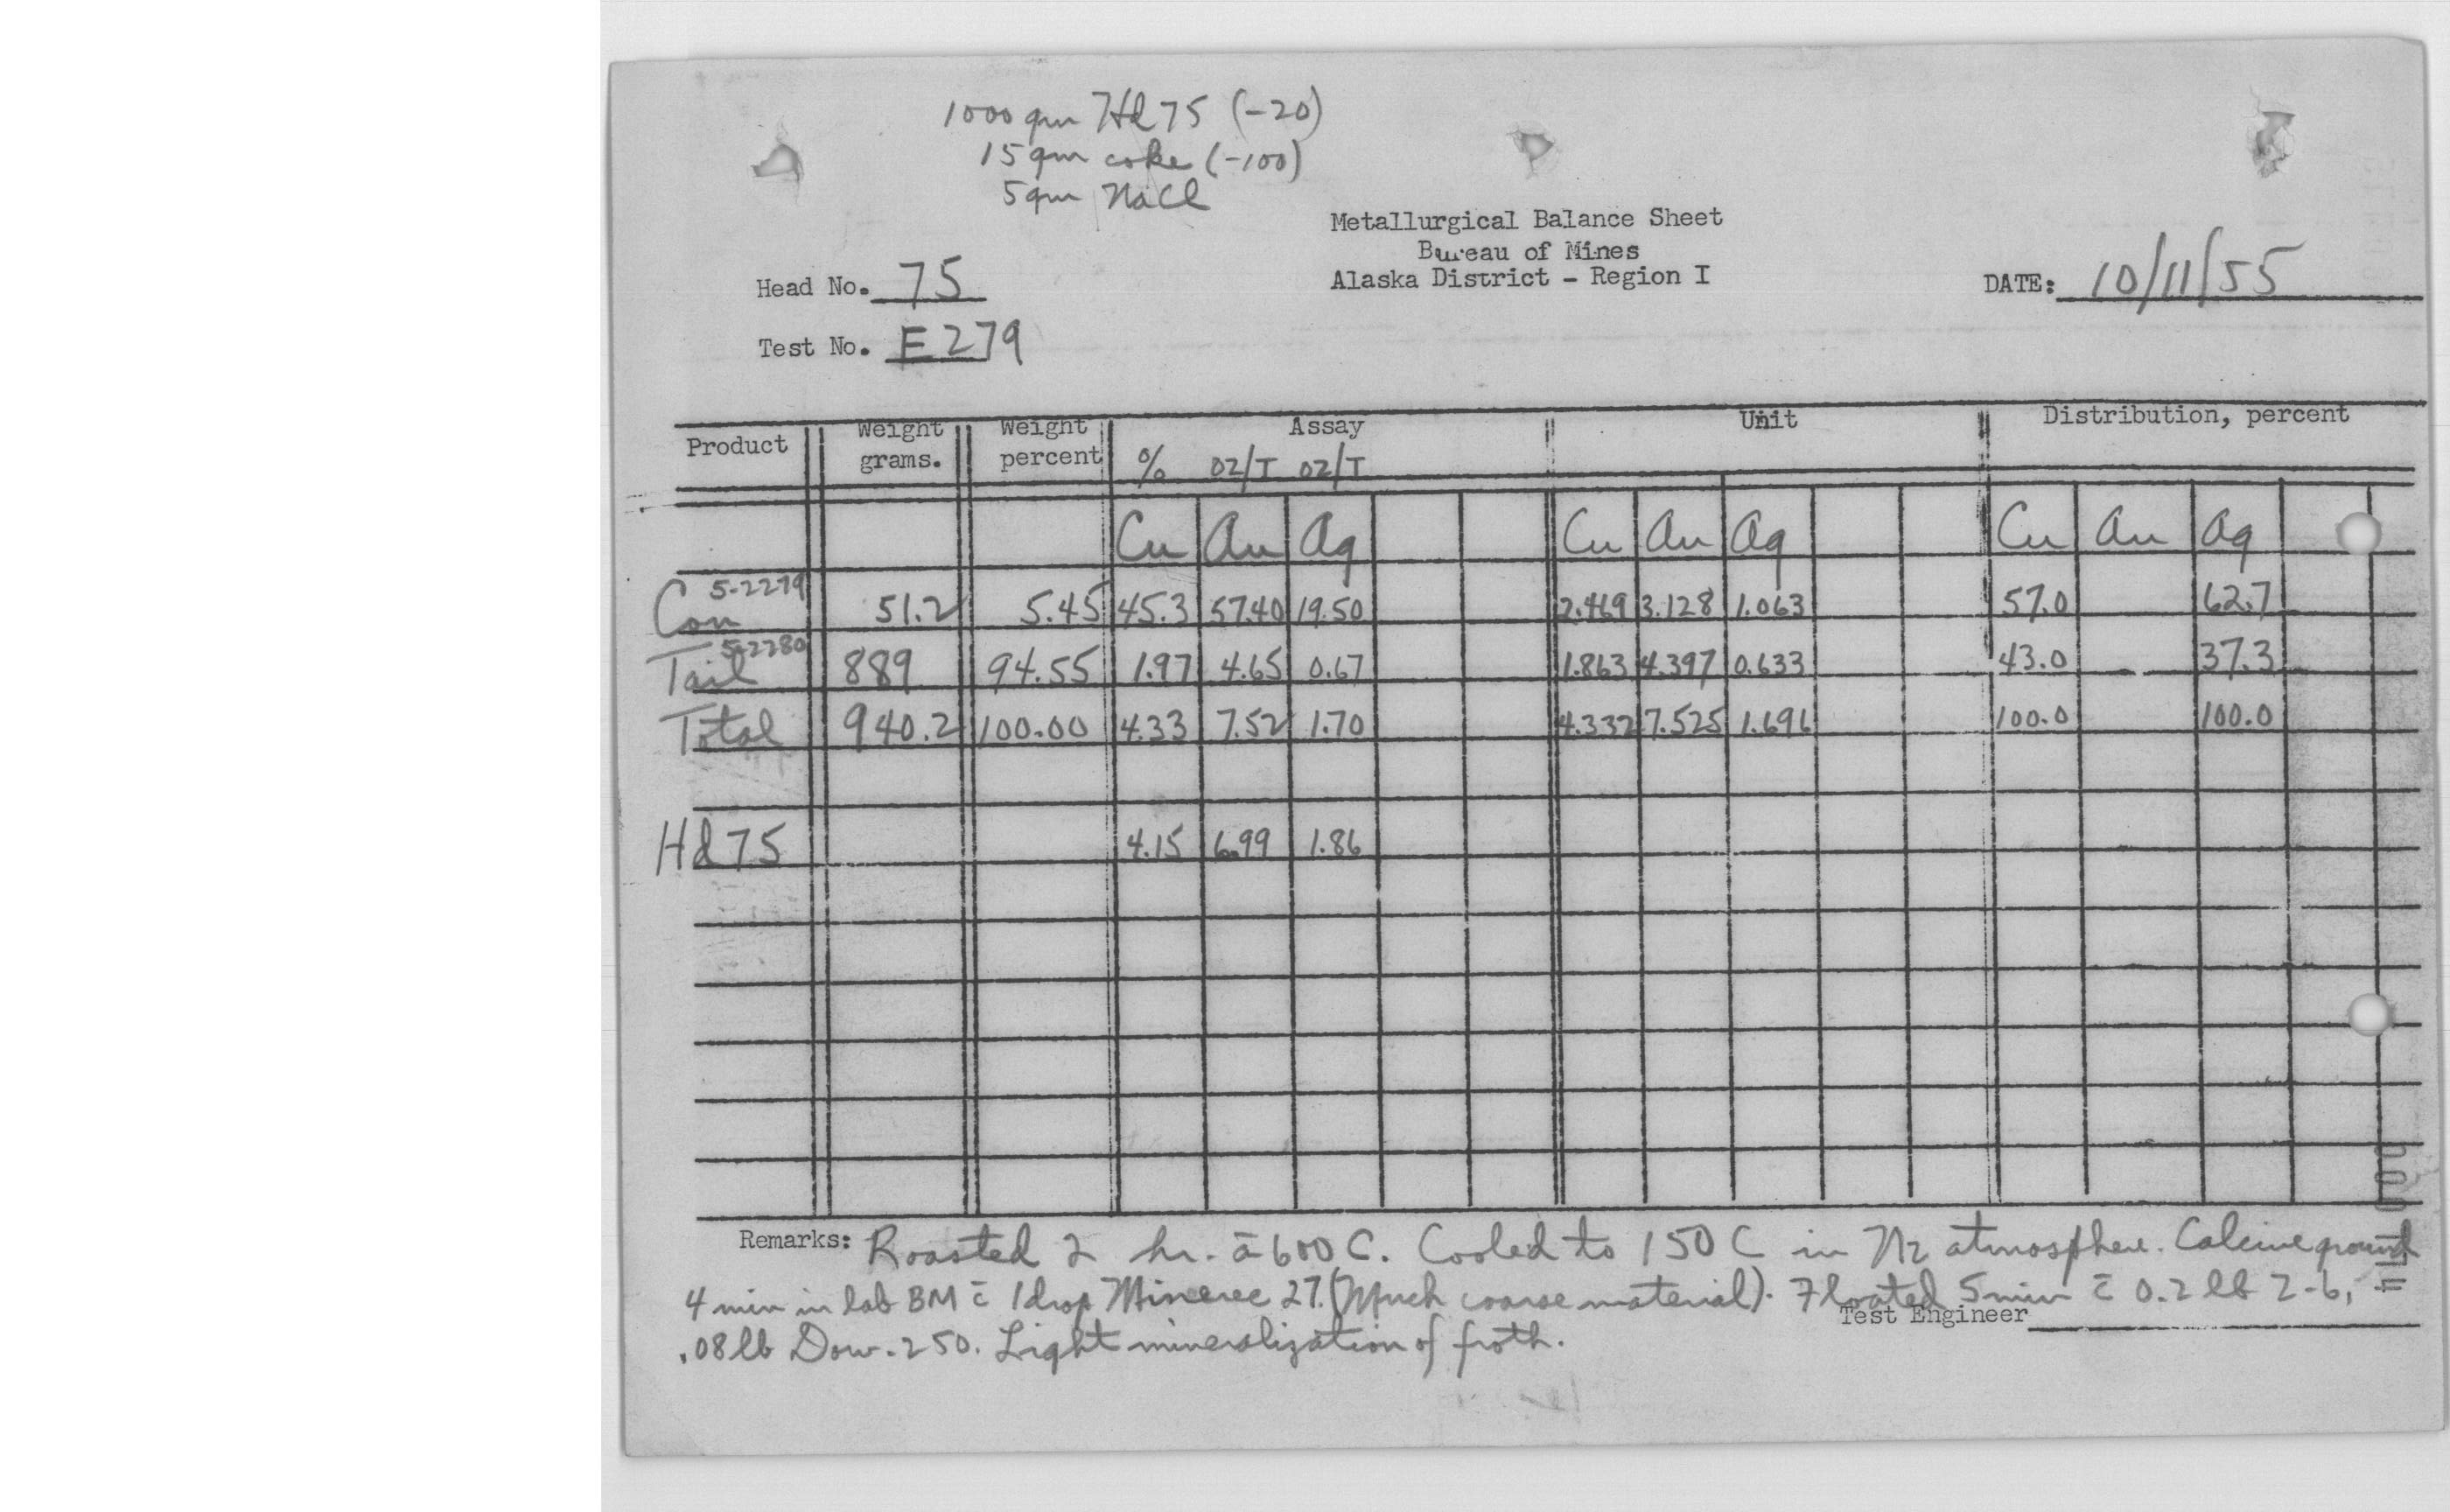 1000 gm Hd 75 (-20)
15 gm coke (-100)
5 gm NaCl
Metallurgical Balance Sheet
Bureau of Mines
Alaska District - Region I
Head No. 75
DATE: 10/11/55
Test No. E279
Product Weight grams. Weight percent Assay Unit Distribution, percent
% OZ/T OZ/T
Cu Au Ag Cu Au Ag Cu Au Ag
Con 5-2279 51.2 5.45 45.3 57.40 19.50 2.469 3.128 1.063 57.0 62.7
Tail 5-2280 889 94.55 1.97 4.65 0.67 1.863 4.397 0.633 43.0 - 37.3
Total 940.2 100.00 4.33 7.52 1.70 4.332 7.525 1.696 100.0 100.0
Hd 75 4.15 6.99 1.86
Remarks: Roasted 2 hr. ā 600 C. Cooled to 150 C in N2 atmosphere. Calcine ground
4 min in lab BM c̄ 1 drop Minerec 27. (Much coarse material). Floated 5 min c̄ 0.2 lb Z-6,
.08 lb Dow. 250. Light mineralization of froth.
Test Engineer